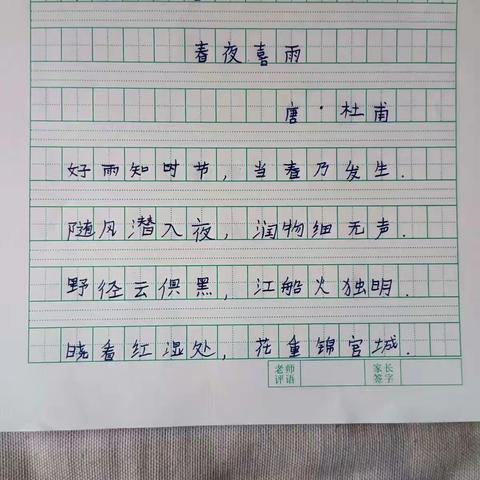 春夜喜雨
唐·杜甫
好雨知时节,当春乃发生.
随风潜入夜,润物细无声.
野径云俱黑,江船火独明.
晓看红湿处,花重锦官城.
老师评语 家长签字